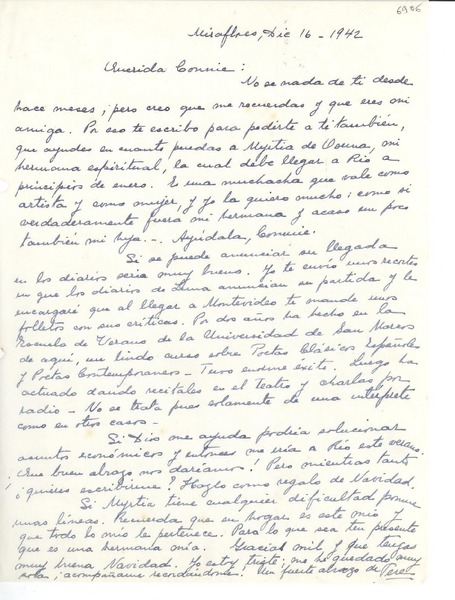 6986
Miraflores, Dic 16 - 1942
Querida Connie:
No se nada de ti desde
hace meses; pero creo que me recuerdas y que eres mi
amiga. Por eso te escribo para pedirte a ti también,
que ayudes en cuanto puedas a Myrtia de Osuna, mi
hermana espiritual, la cual debe llegar a Río a
principios de enero. Es una muchacha que vale como
artista y como mujer, y yo la quiero mucho; como si
verdaderamente fuera mi hermana y acaso un poco
también mi hija... Ayúdala, Connie.
Si se puede anunciar su llegada
en los diarios sería muy bueno. Yo te envío unos recortes
en que los diarios de Lima anuncian su partida y le
encargaré que al llegar a Montevideo te mande unos
folletos con sus críticas. Por dos años ha hecho en la
Escuela de Verano de la Universidad de San Marcos
de aquí, un lindo curso sobre Poetas Clásicos Españoles
y Poetas Contemporaneos - Tuvo enorme éxito. Luego ha
actuado dando recitales en el teatro y charlas por
radio - No se trata pues solamente de una intérprete
como en otros casos -
Si Dios me ayuda podría solucionar
asuntos económicos y entonces me iría a Río este verano.
¡Que buen abrazo nos daríamos! Pero mientras tanto
¿quieres escribirme? Hazlo como regalo de Navidad.
Si Myrtia tiene cualquier dificultad ponme
unas líneas. Recuerda que su hogar es este mío y
que todo lo mío le pertenece. Para lo que sea ten presente
que es una hermana mía. Gracias mil y que tengas
muy buena Navidad. Yo estoy triste; me he quedado muy
sola; acompáñame recordándome! Un fuerte abrazo de